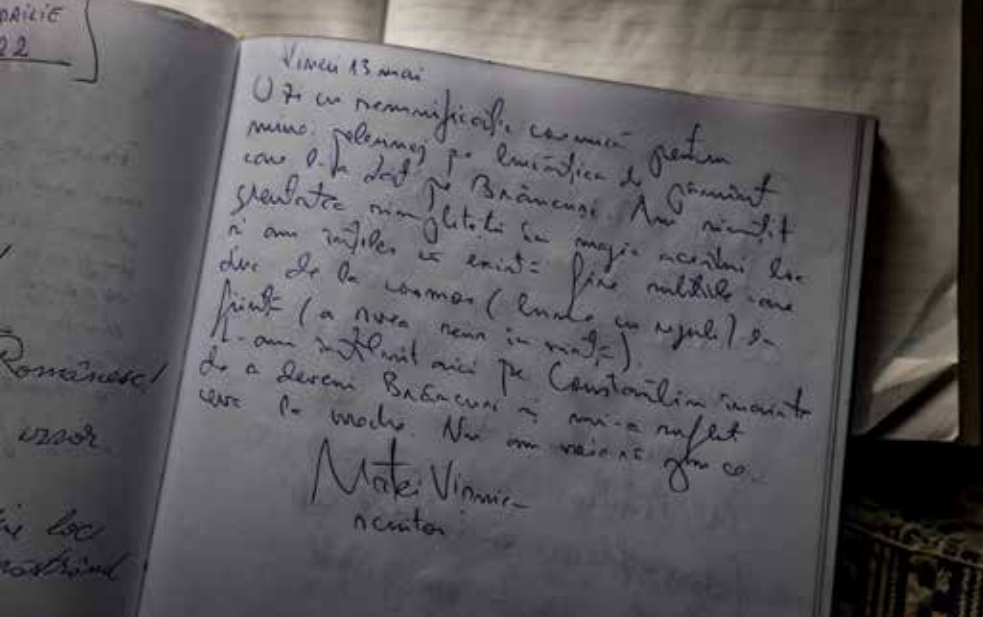 RILIE
22
Românesc!
izvor.
loc
Vineri 13 mai
O zi cu semnificație cosmică pentru
mine: pelerinaj pe bucățica de pământ
care l-a dat pe Brâncuși. Am simțit
greutatea simplității în magia acestui loc
și am înțeles că există fire subtile care
duc de la cosmos (lume cu reguli) la
ființă (a avea sens în viață).
L-am întîlnit aici pe Constantin înainte
de a deveni Brâncuși și mi-a suflat
ceva la ureche. Nu am voie să spun ce..
Matei Vișniec
scriitor